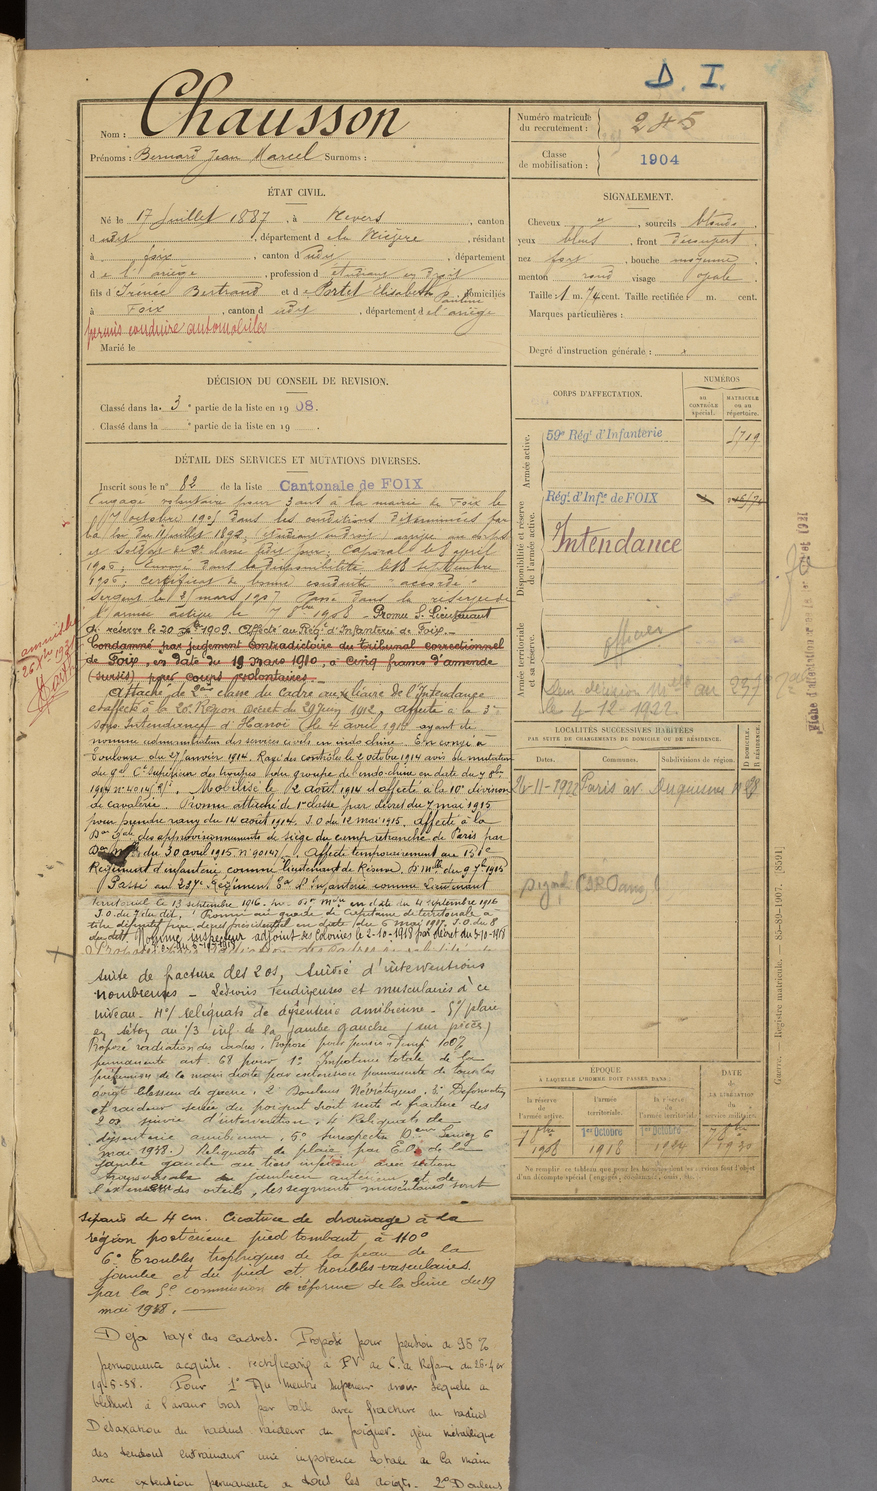 D. I.
Nom : Chausson
Prénoms : Bernard Jean Marcel Surnoms :
Numéro matricule du recrutement : 245
Classe de mobilisation : 1904
ÉTAT CIVIL.
Né le 17 Juillet 1887, à Nevers, canton
dudit, département de la Nièvre, résidant
à Foix, canton dudit, département
de l'ariège, profession d étudiant en droit
fils d'Irénée Bertrand et de Portet Élisabeth Pauline, domiciliés
à Foix, canton dudit, département de l'ariège
permis conduire automobiles
Marié le
SIGNALEMENT.
Cheveux , sourcils blonds
yeux bleus, front découvert
nez fort, bouche moyenne
menton rond visage ovale
Taille : 1 m. 74 cent. Taille rectifiée : m. cent.
Marques particulières :
Degré d'instruction générale :
DÉCISION DU CONSEIL DE REVISION.
Classé dans la 3e partie de la liste en 1908.
Classé dans la e partie de la liste en 19 .
DÉTAIL DES SERVICES ET MUTATIONS DIVERSES.
Inscrit sous le n° 82 de la liste Cantonale de FOIX
Engagé volontaire pour 3 ans à la mairie de Foix le
7 octobre 1905 dans les conditions déterminées par
la loi du 11 juillet 1892, (étudiant en droit) arrivé au corps
et soldat de 2e classe ledit jour; Caporal le 8 avril
1906; Envoyé dans la disponibilité le 18 Septembre
1906; certificat de bonne conduite "accordé"
Sergent le 31 mars 1907 Passé dans la réserve de
l'armée active le 7 8bre 1908 - Promu S. Lieutenant
de réserve le 20 Xbre 1909. Affecté au Régt d'Infanterie de Foix.-
Condamné par jugement contradictoire du Tribunal correctionnel
de Foix, en date du 19 Mars 1910, à Cinq francs d'amende
(Sursis) pour coups volontaires.-
amnistie
Attaché de 2ème classe du Cadre auxiliaire de l'Intendance
et affecté à la 20e Région Décret du 29 Juin 1912, affecté à la 3e
sous Intendance d'Hanoï (le 4 avril 191 ayant été
nommé administration des services civils en indo chine. En congé à
Toulouse du 27 Janvier 1914. Rayé des contrôles le 2 octobre 1914 avis de mutation
du gal Ct Supérieur des troupes du groupe de l'indo-chine en date du 7 8bre
1914 n° 4014/. Mobilisé le 2 août 1914 et affecté à la 10e division
de cavalerie. Promu attaché de 1re classe par décret du 7 mai 1915
pour prendre rang du 14 août 1914. J.O du 12 mai 1915. Affecté à la
Don Gale des approvisionnements de siège du camp retranché de Paris par
Don Mlle du 30 avril 1915. n° 9014/. Affecté temporairement au 151e
Régiment d'infanterie comme lieutenant de Réserve. D. Mlle du 9 7bre 1915
Passé au 237e Régiment d'Infanterie comme Lieutenant
Territorial le 13 septembre 1916. en date du 4 septembre 1916
J.O. du 7 du dit. Promu au grade de Capitaine de territoriale à
titre définitif par décret présidentiel en date du 6 mai 1917. J.O. du 8
du dit. Nommé inspecteur adjoint des Colonies le 2-10-1918 par Décret du 3-10-1918
suite de fracture des 2 os, suivie d'interventions
nombreuses - Lésions tendineuses et musculaires à ce
niveau - 4°/ reliquats de dysenterie amibienne - 5°/ plaie
en séton au 1/3 inf de la jambe gauche (sur pièces)
Proposé radiation des cadres. Proposé pour pension Temp 100%
permanente art. 68 pour 1° Impotence totale de la
préhension de la main droite par extension permanente de tous les
doigts blessure de guerre. 2° Douleurs Névritiques. 3° Déformation
et raideur serrée du poignet droit suite de fracture des
2 os suivie d'intervention. 4° Reliquats de
dysenterie amibienne. 5°
mai 1938.) Reliquats de plaie par E.O. de la
jambe gauche au tiers inférieur avec section
transversale du jambier antérieur, et de
l'extenseur des orteils, les segments musculaires sont
séparés de 4 cm. Cicatrice de drainage à la
région postérieure pied tombant, à 110°
6° Troubles trophiques de la peau de la
jambe et du pied et troubles vasculaires.
par la 5e commission de réforme de la Seine du 19
mai 1938.
Déjà rayé des cadres. Proposé pour pension de 95 %
permanence acquise. rectificatif à PV de C. de Réforme du 26-4 et
19-5-38. Pour 1° Au membre supérieur droit séquelle de
blessure à l'avant bras par balle avec fracture du radius
Désaxation du radius raideur du poignet. gêne
des tendons entrainant une impotence totale de la main
avec extension permanente de tous les doigts. 2° Douleurs
CORPS D'AFFECTATION.
NUMÉROS
au CONTRÔLE spécial.
MATRICULE ou au répertoire.
Armée active.
59e Régt d'Infanterie
1719
Disponibilité et réserve de l'armée active.
Régt d'Infie de FOIX
Intendance
Armée territoriale et sa réserve.
officier
Suiv décision Mlle au 237
le 4-12-1922
LOCALITÉS SUCCESSIVES HABITÉES
PAR SUITE DE CHANGEMENTS DE DOMICILE OU DE RÉSIDENCE.
Dates.
Communes.
Subdivisions de région.
D DOMICILE. R RÉSIDENCE.
26-11-1922 Paris av Duquesne n° 28
ÉPOQUE
À LAQUELLE L'HOMME DOIT PASSER DANS :
la réserve de l'armée active.
l'armée territoriale.
la réserve de l'armée territoriale.
DATE de LA LIBÉRATION du service militaire.
7 8bre 1908
1er Octobre 1918
1er Octobre 1924
7 8bre 1930
Ne remplir ce tableau que pour les hommes dont les services font l'objet
d'un décompte spécial (engagés, etc.
Guerre. — Registre matricule. — 85-89-1907. [8591]